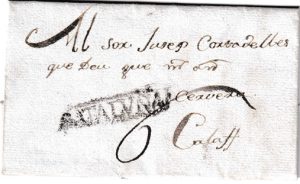 All Sor Jusep Cortadelles
que Deu que ms an
CATALUÑA
Cervera
6
Calaff